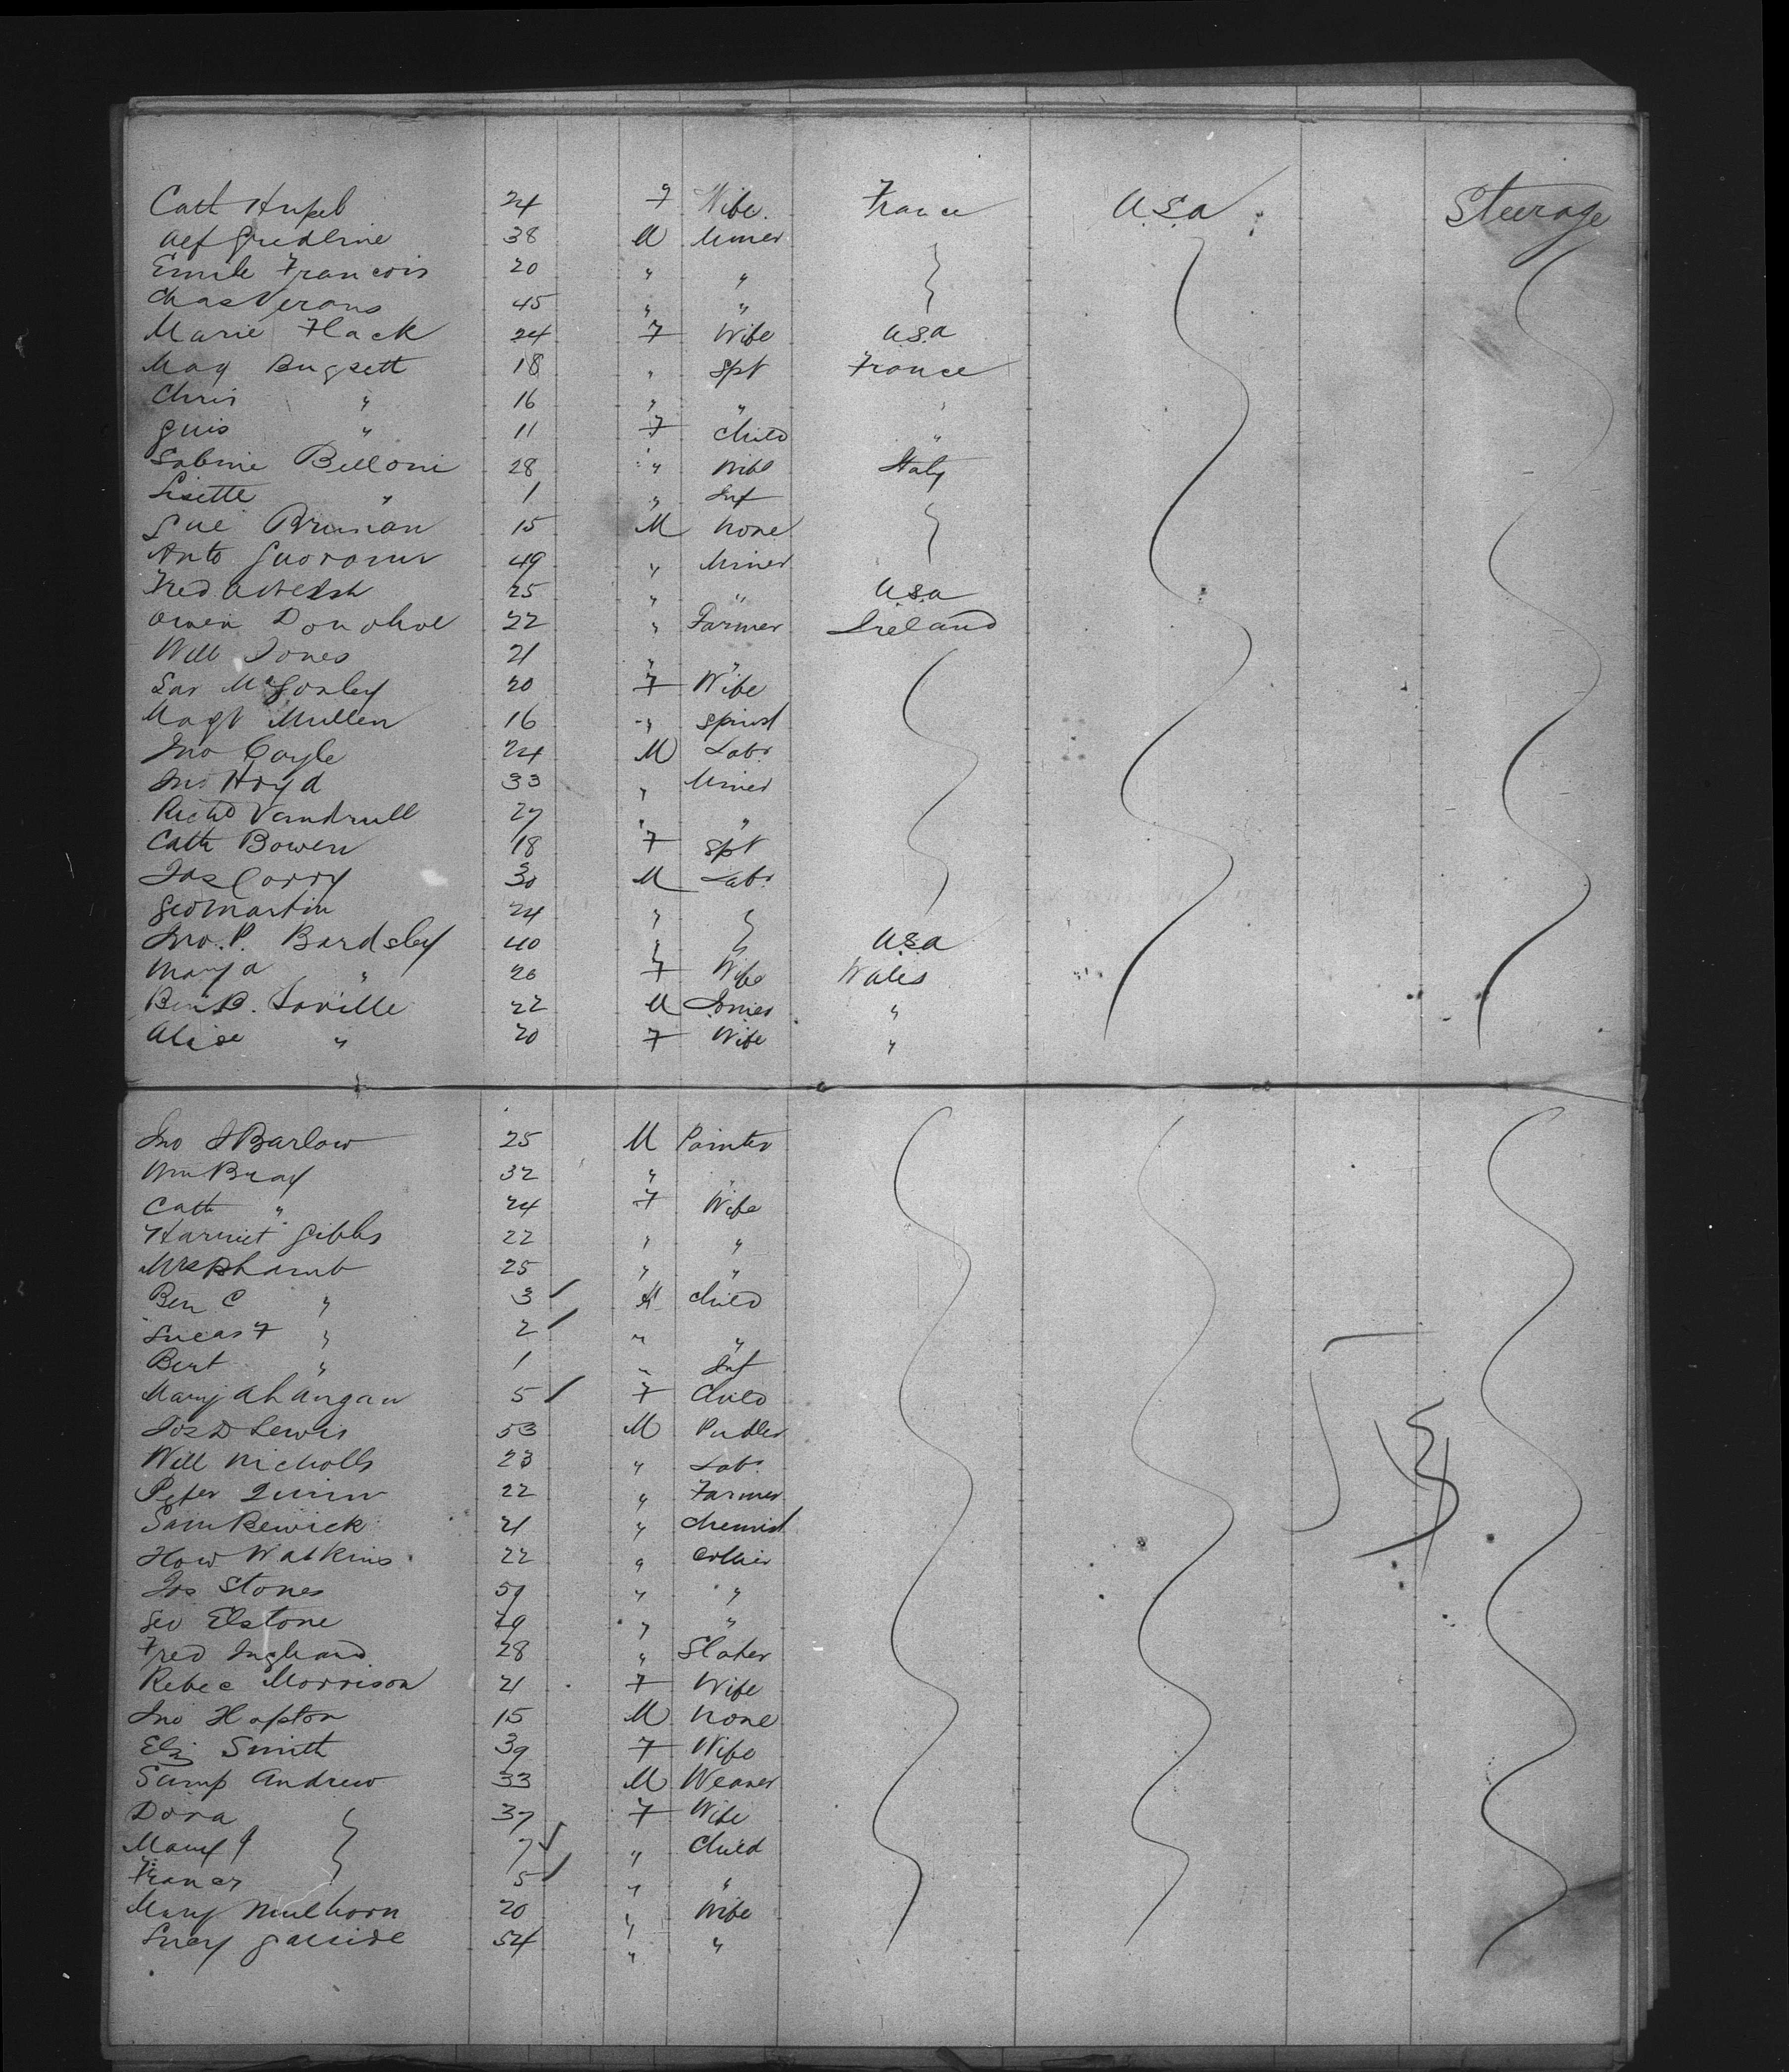 Cath Hupel 24 F Wife. France U.S.a Steerage
Alf Gredline 38 M Miner
Emile Francois 20 " "
Chas Verons 45 " "
Marie Flack 24 F Wife U.S.a
May Bugsett 18 " Spt France
Chris " 16 " " "
Guis " 11 F Child "
Sabine Belloni 28 " Wife Italy
Lisette " 1 " Inf
Gue Brunian 15 M None
Anto 49 " Miner
Fred a Welsh 25 " " U.S.a
Owen Donohoe 22 " Farmer Ireland
Will Jones 21 " "
Sar McGorley 20 F Wife
Magt Mullen 16 " Spinst
Jno Coyle 24 M Labr
Jno Hoyd 33 " Miner
Richd Vandrull 27 " "
Cath Bowen 18 F Spt
Jas Corry 30 M Labr
Geo Martin 24 "
Jno. P. Bardsley 40 U.S.a
Mary a " 26 F Wife Wales
Ben B. Saville 22 M Joiner "
Alice " 20 F Wife "
Jno J Barlow 25 M Painter
Wm Bray 32 " "
Cath " 24 F Wife
Harriet Gibbs 22 " "
Mrs B Lamb 25 " "
Ben C " 3 M Child
Lucas F " 2 " "
Bert " 1 " Inf
Mary ah 5 F Child
Jos D Lewis 53 M Pudler
Will Nicholls 23 " Labr
Peter Quinn 22 " Farmer
Sam Bewick 21 " Chemist
How Watkins 22 " Collier
Jos Stones 59 " "
Geo Elstone 49 " "
Fred England 28 " Slater
Rebec Morrison 21 F Wife
Jno Hapton 15 M None
Eliz Smith 39 F Wife
Samp Andrew 33 M Weaver
Dora 37 F Wife
Mary J 7 " Child
Frances 5 " "
Mary Mulhorn 20 " Wife
Lucy Garside 54 " "